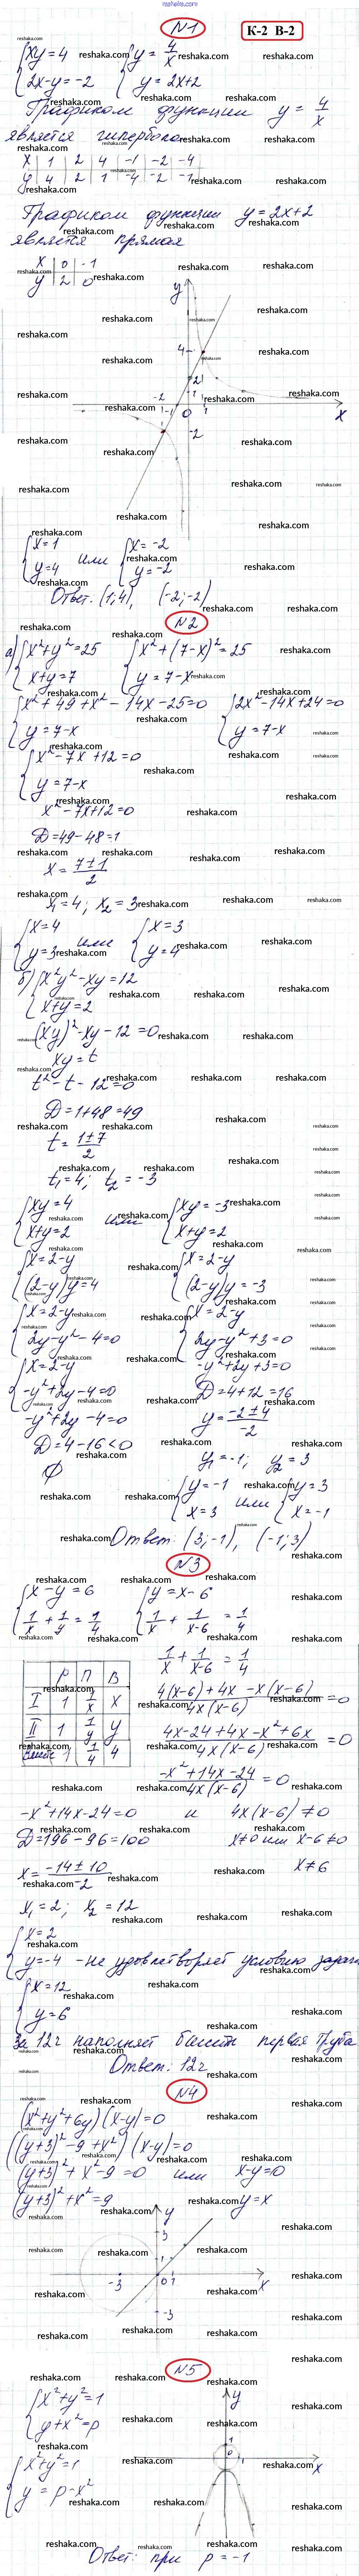 reshaka.com
N1
К-2 В-2
{xy = 4
2x-y = -2
{y = 4/x
y = 2x+2
Графиком функции y = 4/x
является гипербола.
x | 1 | 2 | 4 | -1 | -2 | -4
y | 4 | 2 | 1 | -4 | -2 | -1
Графиком функции y = 2x+2
является прямая
x | 0 | -1
y | 2 | 0
{x = 1
y = 4
или
{x = -2
y = -2
Ответ. (1;4), (-2;-2)
N2
а) {x²+y² = 25
x+y = 7
{x²+(7-x)² = 25
y = 7-x
{x²+49+x²-14x-25=0
y = 7-x
{2x²-14x+24=0
y = 7-x
{x²-7x+12=0
y = 7-x
x²-7x+12=0
D=49-48=1
x = (7±1)/2
x₁=4; x₂=3
{x=4
y=3
или
{x=3
y=4
б) {x²y²-xy=12
x+y=2
(xy)²-xy-12=0
xy=t
t²-t-12=0
D=1+48=49
t = (1±7)/2
t₁=4; t₂=-3
{xy=4
x+y=2
или
{xy=-3
x+y=2
{x=2-y
(2-y)y=4
{x=2-y
(2-y)y=-3
{x=2-y
2y-y²-4=0
{x=2-y
2y-y²+3=0
{x=2-y
-y²+2y-4=0
-y²+2y+3=0
-y²+2y-4=0
D=4+12=16
D=4-16<0
y = (-2±4)/-2
∅
y₁=-1; y₂=3
{y=-1
x=3
или
{y=3
x=-1
Ответ: (3;-1), (-1;3)
N3
{x-y=6
1/x + 1/y = 1/4
{y=x-6
1/x + 1/(x-6) = 1/4
1/x + 1/(x-6) = 1/4
| Р | П | В
I | 1 | 1/x | x
II | 1 | 1/y | y
Вместе | 1 | 1/4 | 4
(4(x-6)+4x-x(x-6))/(4x(x-6)) = 0
(4x-24+4x-x²+6x)/(4x(x-6)) = 0
(-x²+14x-24)/(4x(x-6)) = 0
-x²+14x-24=0 и 4x(x-6)≠0
D=196-96=100
x≠0 или x-6≠0
x≠6
x = (-14±10)/-2
x₁=2; x₂=12
{x=2
y=-4 - не удовлетворяет условию задачи
{x=12
y=6
За 12ч наполняет бассейн первая труба
Ответ: 12ч
N4
(x²+y²+6y)(x-y)=0
((y+3)²-9+x²)(x-y)=0
(y+3)²+x²-9=0 или x-y=0
(y+3)²+x²=9
y=x
N5
{x²+y²=1
y+x²=p
{x²+y²=1
y = p-x²
Ответ: при p=-1